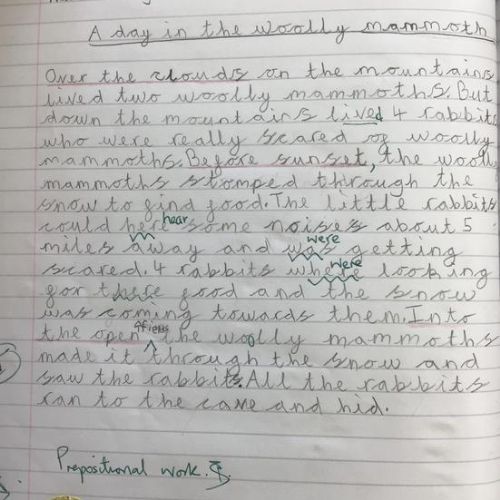 A day in the woolly mammoth
Over the clouds on the mountains
lived two woolly mammoths. But
down the mountains lived 4 rabbits
who were really scared of woolly
mammoths. Before sunset, the woolly
mammoths stomped through the
snow to find food. The little rabbits
could here hear some noises about 5
miles away and was were getting
scared. 4 rabbits where were looking
for there food and the snow
was coming towards them. Into
the open the woolly mammoths
made it through the snow and
saw the rabbits. All the rabbits
ran to the cave and hid.
Prepositional work.